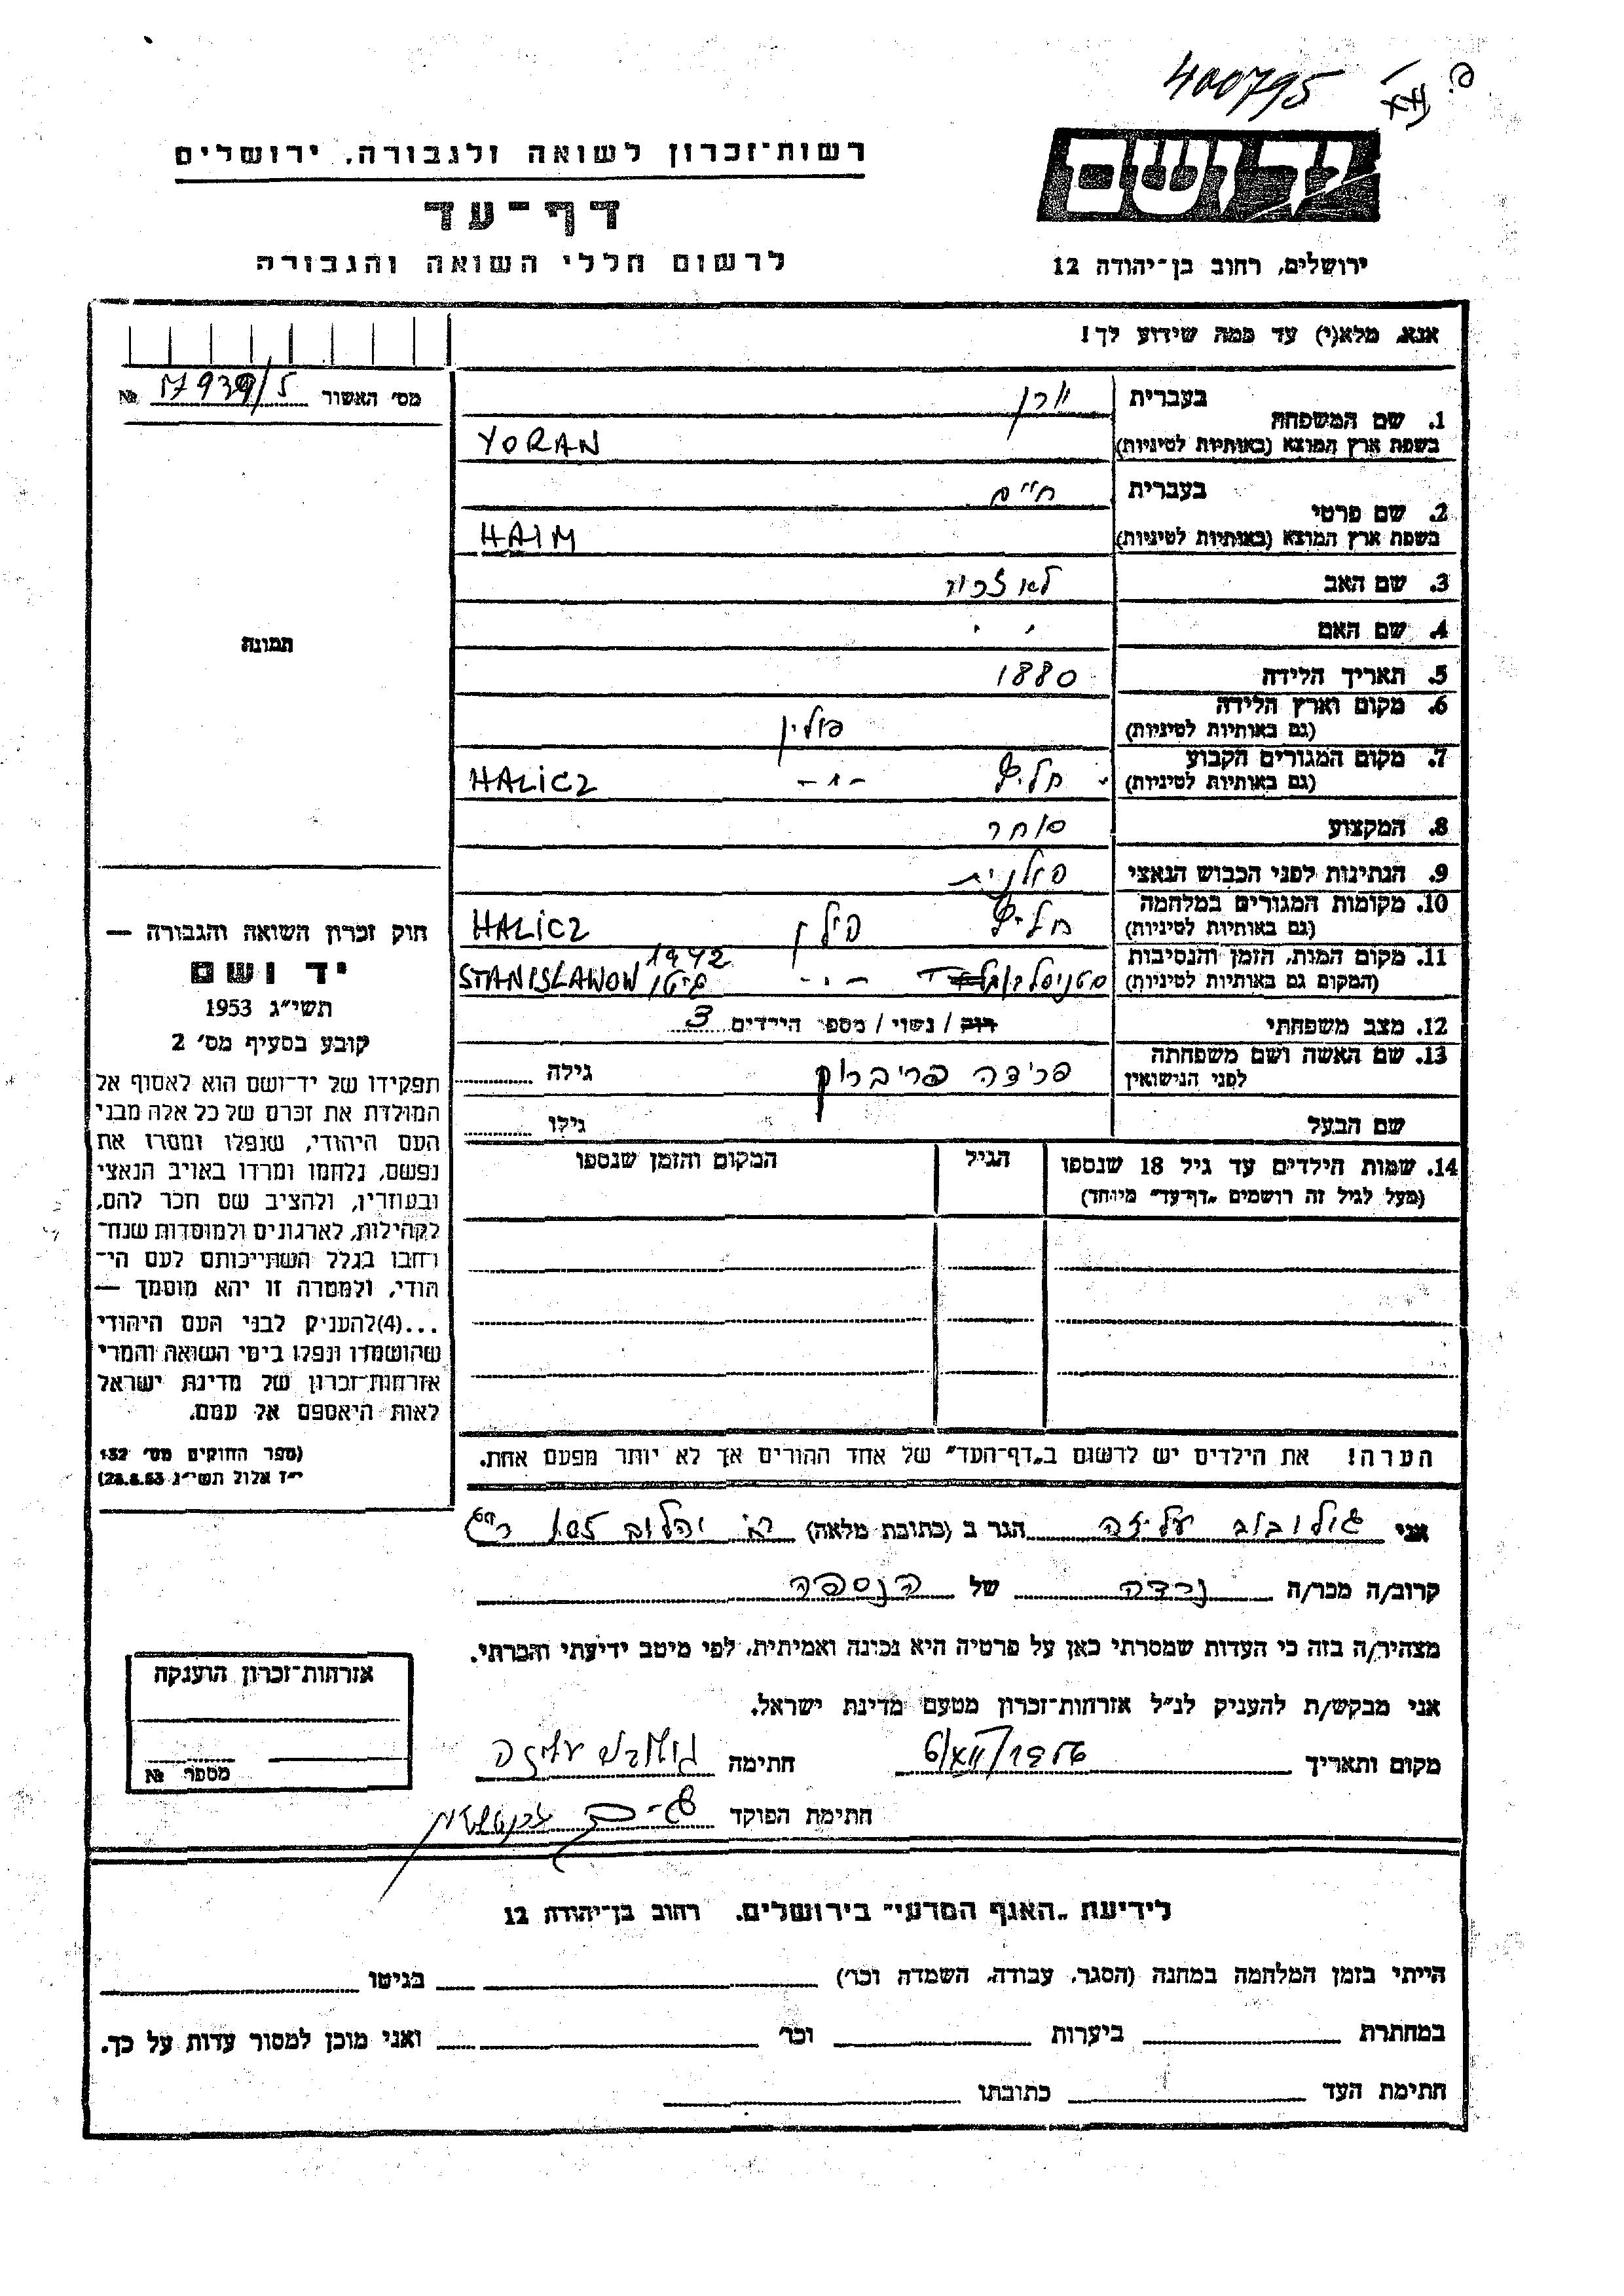 400795
יד ושם
רשות־זכרון לשואה ולגבורה. ירושלים
דף־עד
לרשום חללי השואה והגבורה
ירושלים, רחוב בן־יהודה 12
אנא, מלא(י) עד כמה שידוע לך!
מס׳ האשור 17939/5 №
1. שם המשפחה בעברית יורן
בשפת ארץ המוצא (באותיות לטיניות) YORAN
2. שם פרטי בעברית חיים
בשפת ארץ המוצא (באותיות לטיניות) HAIM
3. שם האב לא זכור
4. שם האם ׳ ׳
5. תאריך הלידה 1880
6. מקום וארץ הלידה (גם באותיות לטיניות) פולין
7. מקום המגורים הקבוע (גם באותיות לטיניות) חליץ -״- HALICZ
8. המקצוע סוחר
9. הנתינות לפני הכבוש הנאצי פולנית
10. מקומות המגורים במלחמה (גם באותיות לטיניות) חליץ פולין HALICZ
11. מקום המות, הזמן והנסיבות (המקום גם באותיות לטיניות) -״- 1942 גיטו STANISLAWOW
12. מצב משפחתי רווק / נשוי / מספר הילדים 3
13. שם האשה ושם משפחתה לפני הנישואין פרידה פריברוק גילה
שם הבעל גילו
14. שמות הילדים עד גיל 18 שנספו הגיל המקום והזמן שנספו
(מעל לגיל זה רושמים „דף־עד״ מיוחד)
הערה! את הילדים יש לרשום ב„דף־העד״ של אחד ההורים אך לא יותר מפעם אחת.
תמונה
חוק זכרון השואה והגבורה —
יד ושם
תשי״ג 1953
קובע בסעיף מס׳ 2
תפקידו של יד־ושם הוא לאסוף אל
המולדת את זכרם של כל אלה מבני
העם היהודי, שנפלו ומסרו את
נפשם, נלחמו ומרדו באויב הנאצי
ובעוזריו, ולהציב שם וזכר להם,
לקהילות, לארגונים ולמוסדות שנח־
רחבו בגלל השתייכותם לעם הי־
הודי, ולמטרה זו יהא מוסמך —
...(4)להעניק לבני העם היהודי
שהושמדו ונפלו בימי השואה והמרי
אזרחות־זכרון של מדינת ישראל
לאות היאספם אל עמם.
(ספר החוקים מס׳ 132
י״ז אלול תשי״ג 28.8.53)
אני גולובוב עליזה הגר ב (כתובת מלאה)
קרוב/ה מכר/ה נכדה של הנספה
מצהיר/ה בזה כי העדות שמסרתי כאן על פרטיה היא נכונה ואמיתית, לפי מיטב ידיעתי והכרתי.
אני מבקש/ת להעניק לנ״ל אזרחות־זכרון מטעם מדינת ישראל.
מקום ותאריך חתימה גולובוב עליזה
חתימת הפוקד
אזרחות־זכרון הוענקה
מספר №
לידיעת „האגף המדעי״ בירושלים. רחוב בן־יהודה 12
הייתי בזמן המלחמה במחנה (הסגר, עבודה, השמדה וכו׳) בגיטו
במחתרת ביערות וכו׳ ואני מוכן למסור עדות על כך.
חתימת העד כתובתו